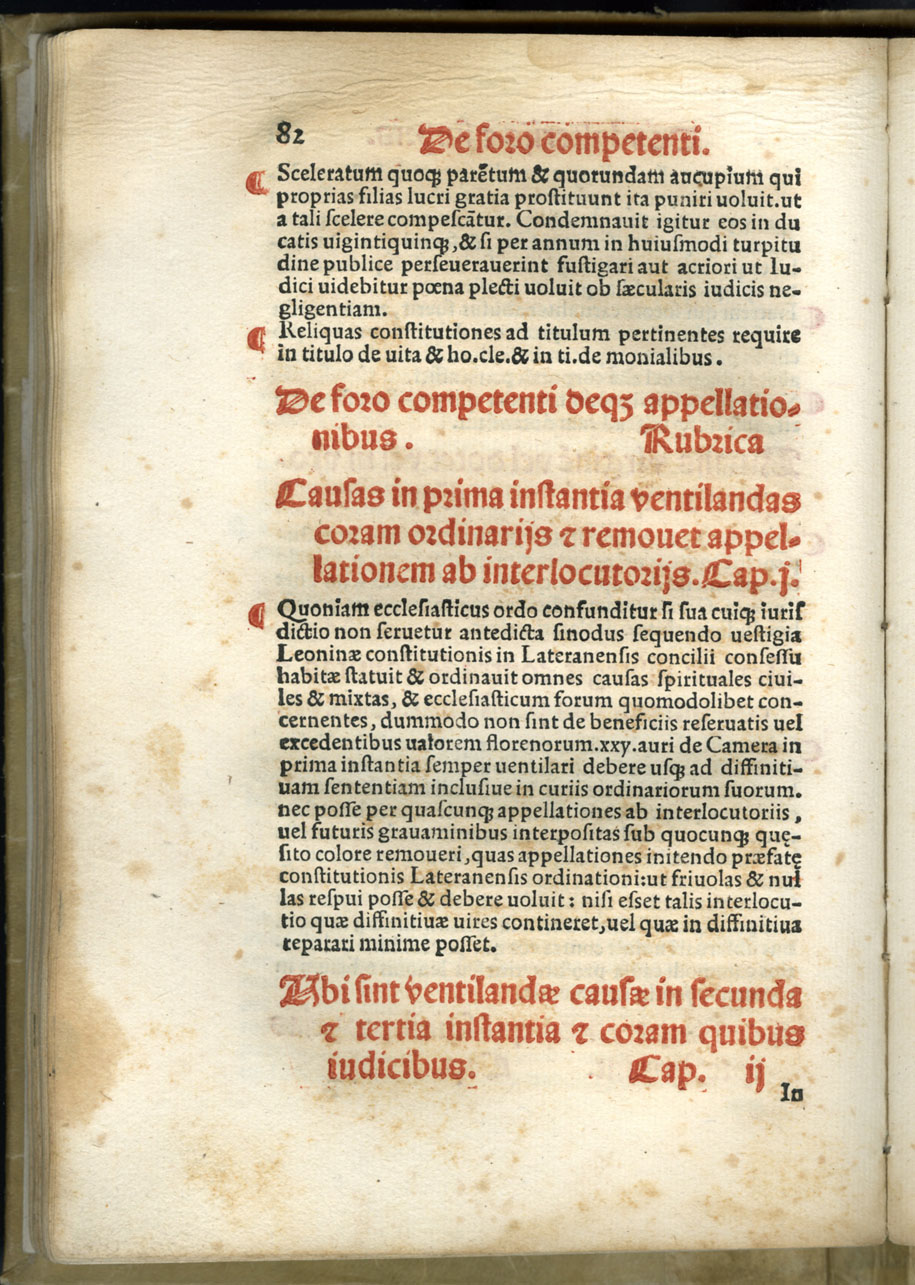 82
De foro competenti.
¶ Sceleratum quoqꝫ parẽtum & quorundam aucupium qui
proprias filias lucri gratia prostituunt ita puniri uoluit.ut
a tali scelere compescãtur. Condemnauit igitur eos in du
catis uigintiquinqꝫ,& si per annum in huiusmodi turpitu
dine publice perseuerauerint fustigari aut acriori ut Iu-
dici uidebitur pœna plecti uoluit ob sæcularis iudicis ne-
gligentiam.
¶ Reliquas constitutiones ad titulum pertinentes require
in titulo de uita & ho.cle.& in ti.de monialibus.
De foro competenti deqꝫ appellatio-
nibus. Rubrica
Causas in prima instantia ventilandas
coram ordinarijs ⁊ remouet appel-
lationem ab interlocutorijs.Cap.j.
¶ Quoniam ecclesiasticus ordo confunditur si sua cuiqꝫ iuris
dictio non seruetur antedicta sinodus sequendo uestigia
Leoninæ constitutionis in Lateranensis concilii consessu
habitæ statuit & ordinauit omnes causas spirituales ciui-
les & mixtas, & ecclesiasticum forum quomodolibet con-
cernentes, dummodo non sint de beneficiis reseruatis uel
excedentibus ualorem florenorum.xxy.auri de Camera in
prima instantia semper uentilari debere usqꝫ ad diffiniti-
uam sententiam inclusiue in curiis ordinariorum suorum.
nec posse per quascunqꝫ appellationes ab interlocutoriis,
uel futuris grauaminibus interpositas sub quocunqꝫ quę-
sito colore remoueri,quas appellationes initendo præfatę
constitutionis Lateranensis ordinationi:ut friuolas & nul
las respui posse & debere uoluit: nisi esset talis interlocu-
tio quæ diffinitiuæ uires contineret,uel quæ in diffinitiua
reparari minime posset.
Ubi sint ventilandæ causæ in secunda
⁊ tertia instantia ⁊ coram quibus
iudicibus. Cap. ij
In